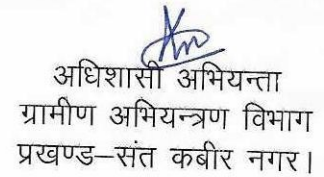 अधिशासी अभियन्ता
ग्रामीण अभियन्त्रण विभाग
प्रखण्ड–संत कबीर नगर।